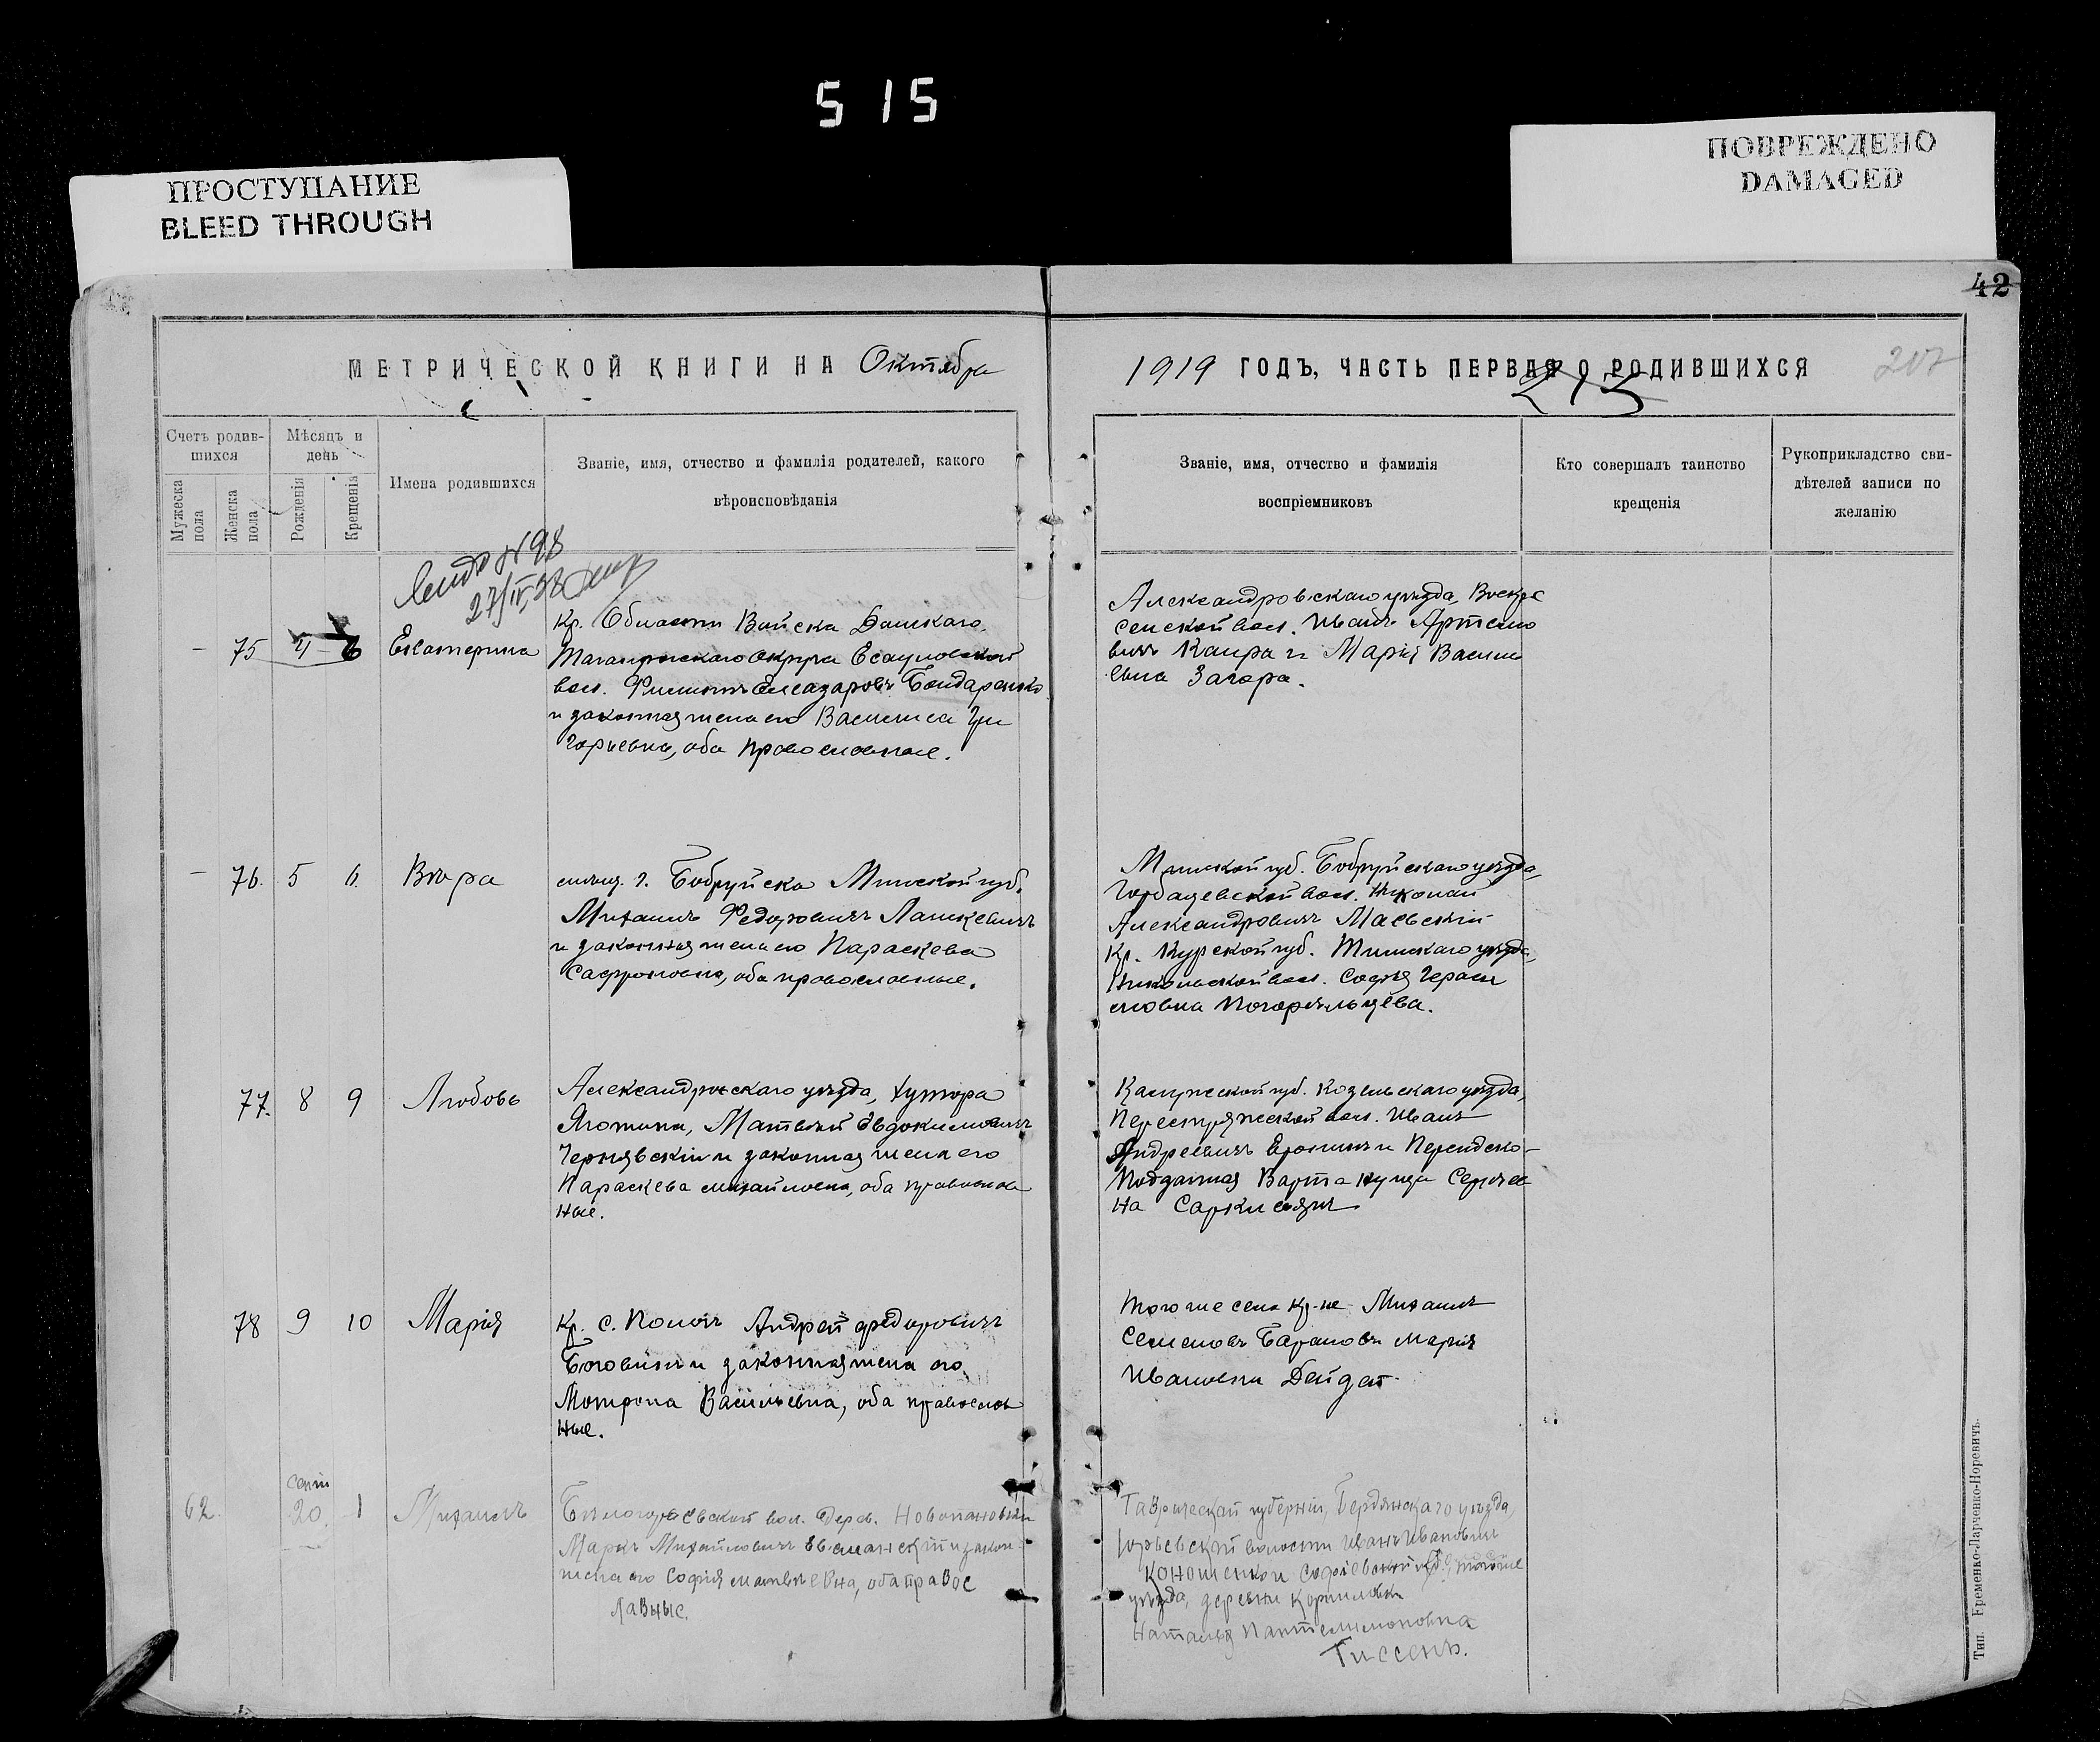 515
ПРОСТУПАНИЕ
BLEED THROUGH
ПОВРЕЖДЕНО
DAMAGED
42
МЕТРИЧЕСКОЙ КНИГИ НА Октябрь
1919 ГОДЪ, ЧАСТЬ ПЕРВАЯ О РОДИВШИХСЯ
207
215
Счетъ родив-
шихся
Мѣсяцъ и
день
Мужеска
пола
Женска
пола
Рожденія
Крещенія
Имена родившихся
Званіе, имя, отчество и фамилія родителей, какого
вѣроисповѣданія
Званіе, имя, отчество и фамилія
воспріемниковъ
Кто совершалъ таинство
крещенія
Рукоприкладство сви-
дѣтелей записи по
желанію
№ 98
27/IV 28
— 75 4 6 Екатерина
Кр. Области Войска Донскаго,
Таганрогскаго округа Есауловской
вол. Филиппъ Елеазаровъ Бондаренко
и законная жена его Василиса Гри
горьевна, оба православные.
Александровскаго уѣзда, Воскре
сенской вол. Иванъ Артемо
вичъ Каира и Марія Василь
евна Загора.
— 76. 5 6. Вѣра
мѣщ. г. Бобруйска Минской губ.
Михаилъ Федоровичъ Лашкевичъ
и законная жена его Параскева
Сафроновна, оба православные.
Минской губ. Бобруйскаго уѣзда,
Горбацевской вол. Николай
Александровичъ Маевскій
Кр. Курской губ. Тимскаго уѣзда,
Никольской вол. Софія Гераси
мовна Погорѣльцева.
77. 8 9 Любовь
Александровскаго уѣзда, хутора
Яготина, Матвѣй Евдокимовичъ
Чернявскій и законная жена его
Параскева Михайловна, оба православ
ные.
Калужской губ. Козельскаго уѣзда,
вол. Иванъ
Андреевичъ и Персидско-
подданная Сергѣев
на Саркисянъ
78 9 10 Марія
Кр. с. Пологъ Андрей Федоровичъ
Боговинъ и законная жена его
Мотрона Васильевна, оба православ
ные.
Того же села кр-не Михаилъ
Семеновъ Барановъ Марія
Ивановна Дейдей
62. Сент 20. 1 Михаилъ
вол. дерев. Новопановки
Маркъ Михайловичъ и закон.
жена его Софія Матвѣевна, оба правос
лавные.
Таврической губерніи, Бердянскаго уѣзда,
Юрьевской волости Иванъ Ивановичъ
и Софіевской того же
уѣзда, деревни Корниловки
Наталья Пантелимоновна
Тиссенъ.
Тип. Еременко-Ларченко-Норевичъ.